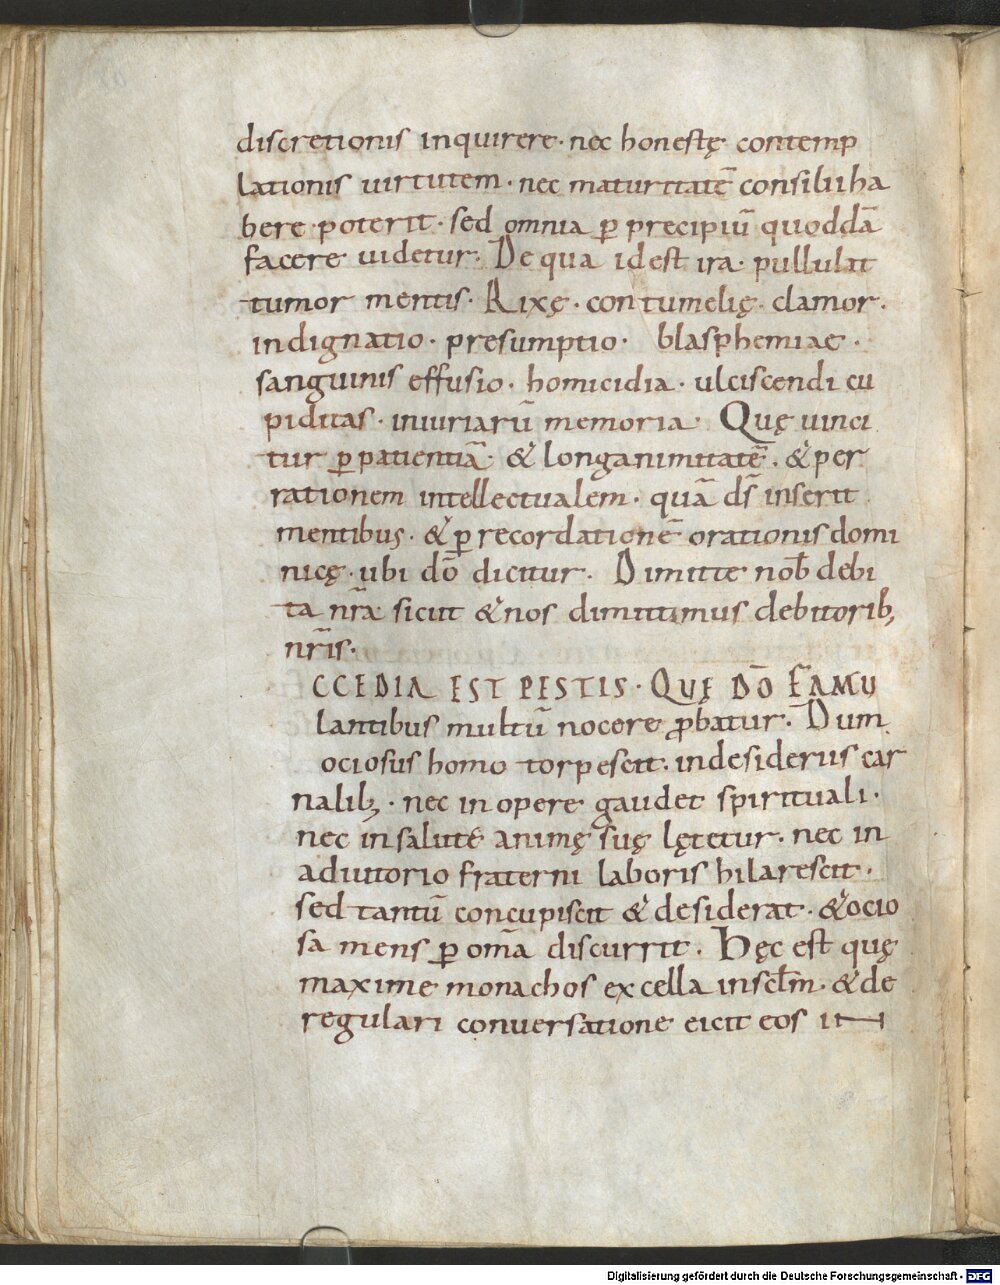 discretionis inquirere · nec honestę contemp
lationis uirtutem · nec maturitatē consilii ha
bere poterit · sed omnia ꝑ precipiū quoddā
facere uidetur · De qua id est ira · pullulat
tumor mentis · Rixę · contumelię · clamor ·
indignatio · presumptio · blasphemiae ·
sanguinis effusio · homicidia · ulciscendi cu
piditas · iniuriarū memoria · Quę uinci
tur ꝑ patientiā · & longanimitatē · & per
rationem intellectualem · quā d̄s inserit
mentibus · & ꝑ recordationē orationis domi
nicę · ubi dō dicitur · Dimitte nob̄ debi
ta nr̄a sicut & nos dimittimus debitorib;
nr̄is ·
CCEDIA EST PESTIS · QUĘ DŌ FAMU
lantibus multū nocere ꝓbatur · Dum
ociosus homo torpescit · in desideriis car
nalib; · nec in opere gaudet spirituali ·
nec in salutē animę suę lętetur · nec in
adiutorio fraterni laboris hilarescit ·
sed tantū concupiscit & desiderat · & ocio
sa mens ꝑ om̄a discurrit · Hęc est quę
maxime monachos ex cella in sc̄lm · & de
regulari conuersatione eicit eos in